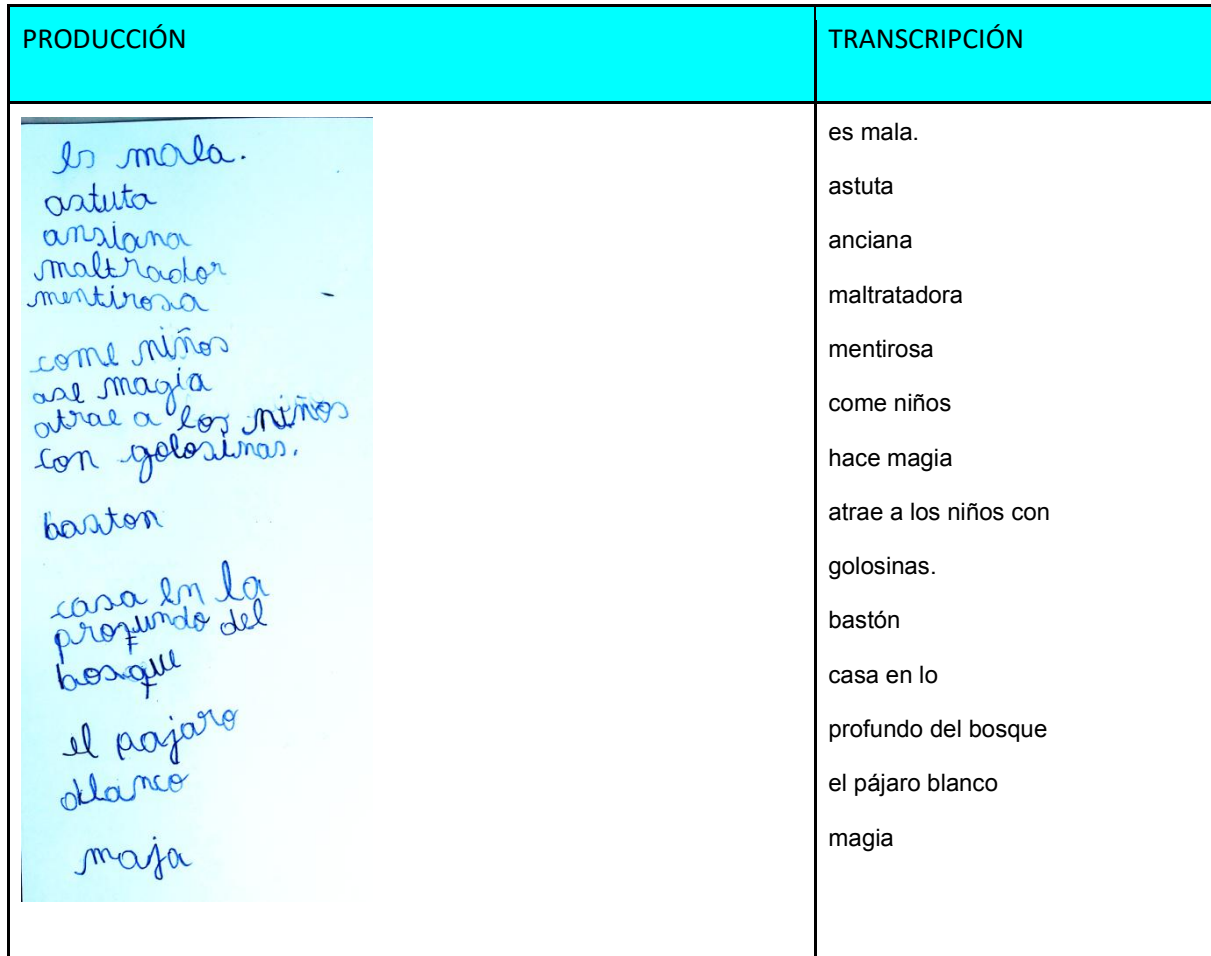 PRODUCCIÓN
TRANSCRIPCIÓN
es mala.
astuta
ansiana
maltrador
mentirosa
come niños
ase magia
atrae a los niños
con golosinas.
baston
casa en la
profundo del
bosque
el pajaro
dlanco
maja
es mala.
astuta
anciana
maltratadora
mentirosa
come niños
hace magia
atrae a los niños con
golosinas.
bastón
casa en lo
profundo del bosque
el pájaro blanco
magia